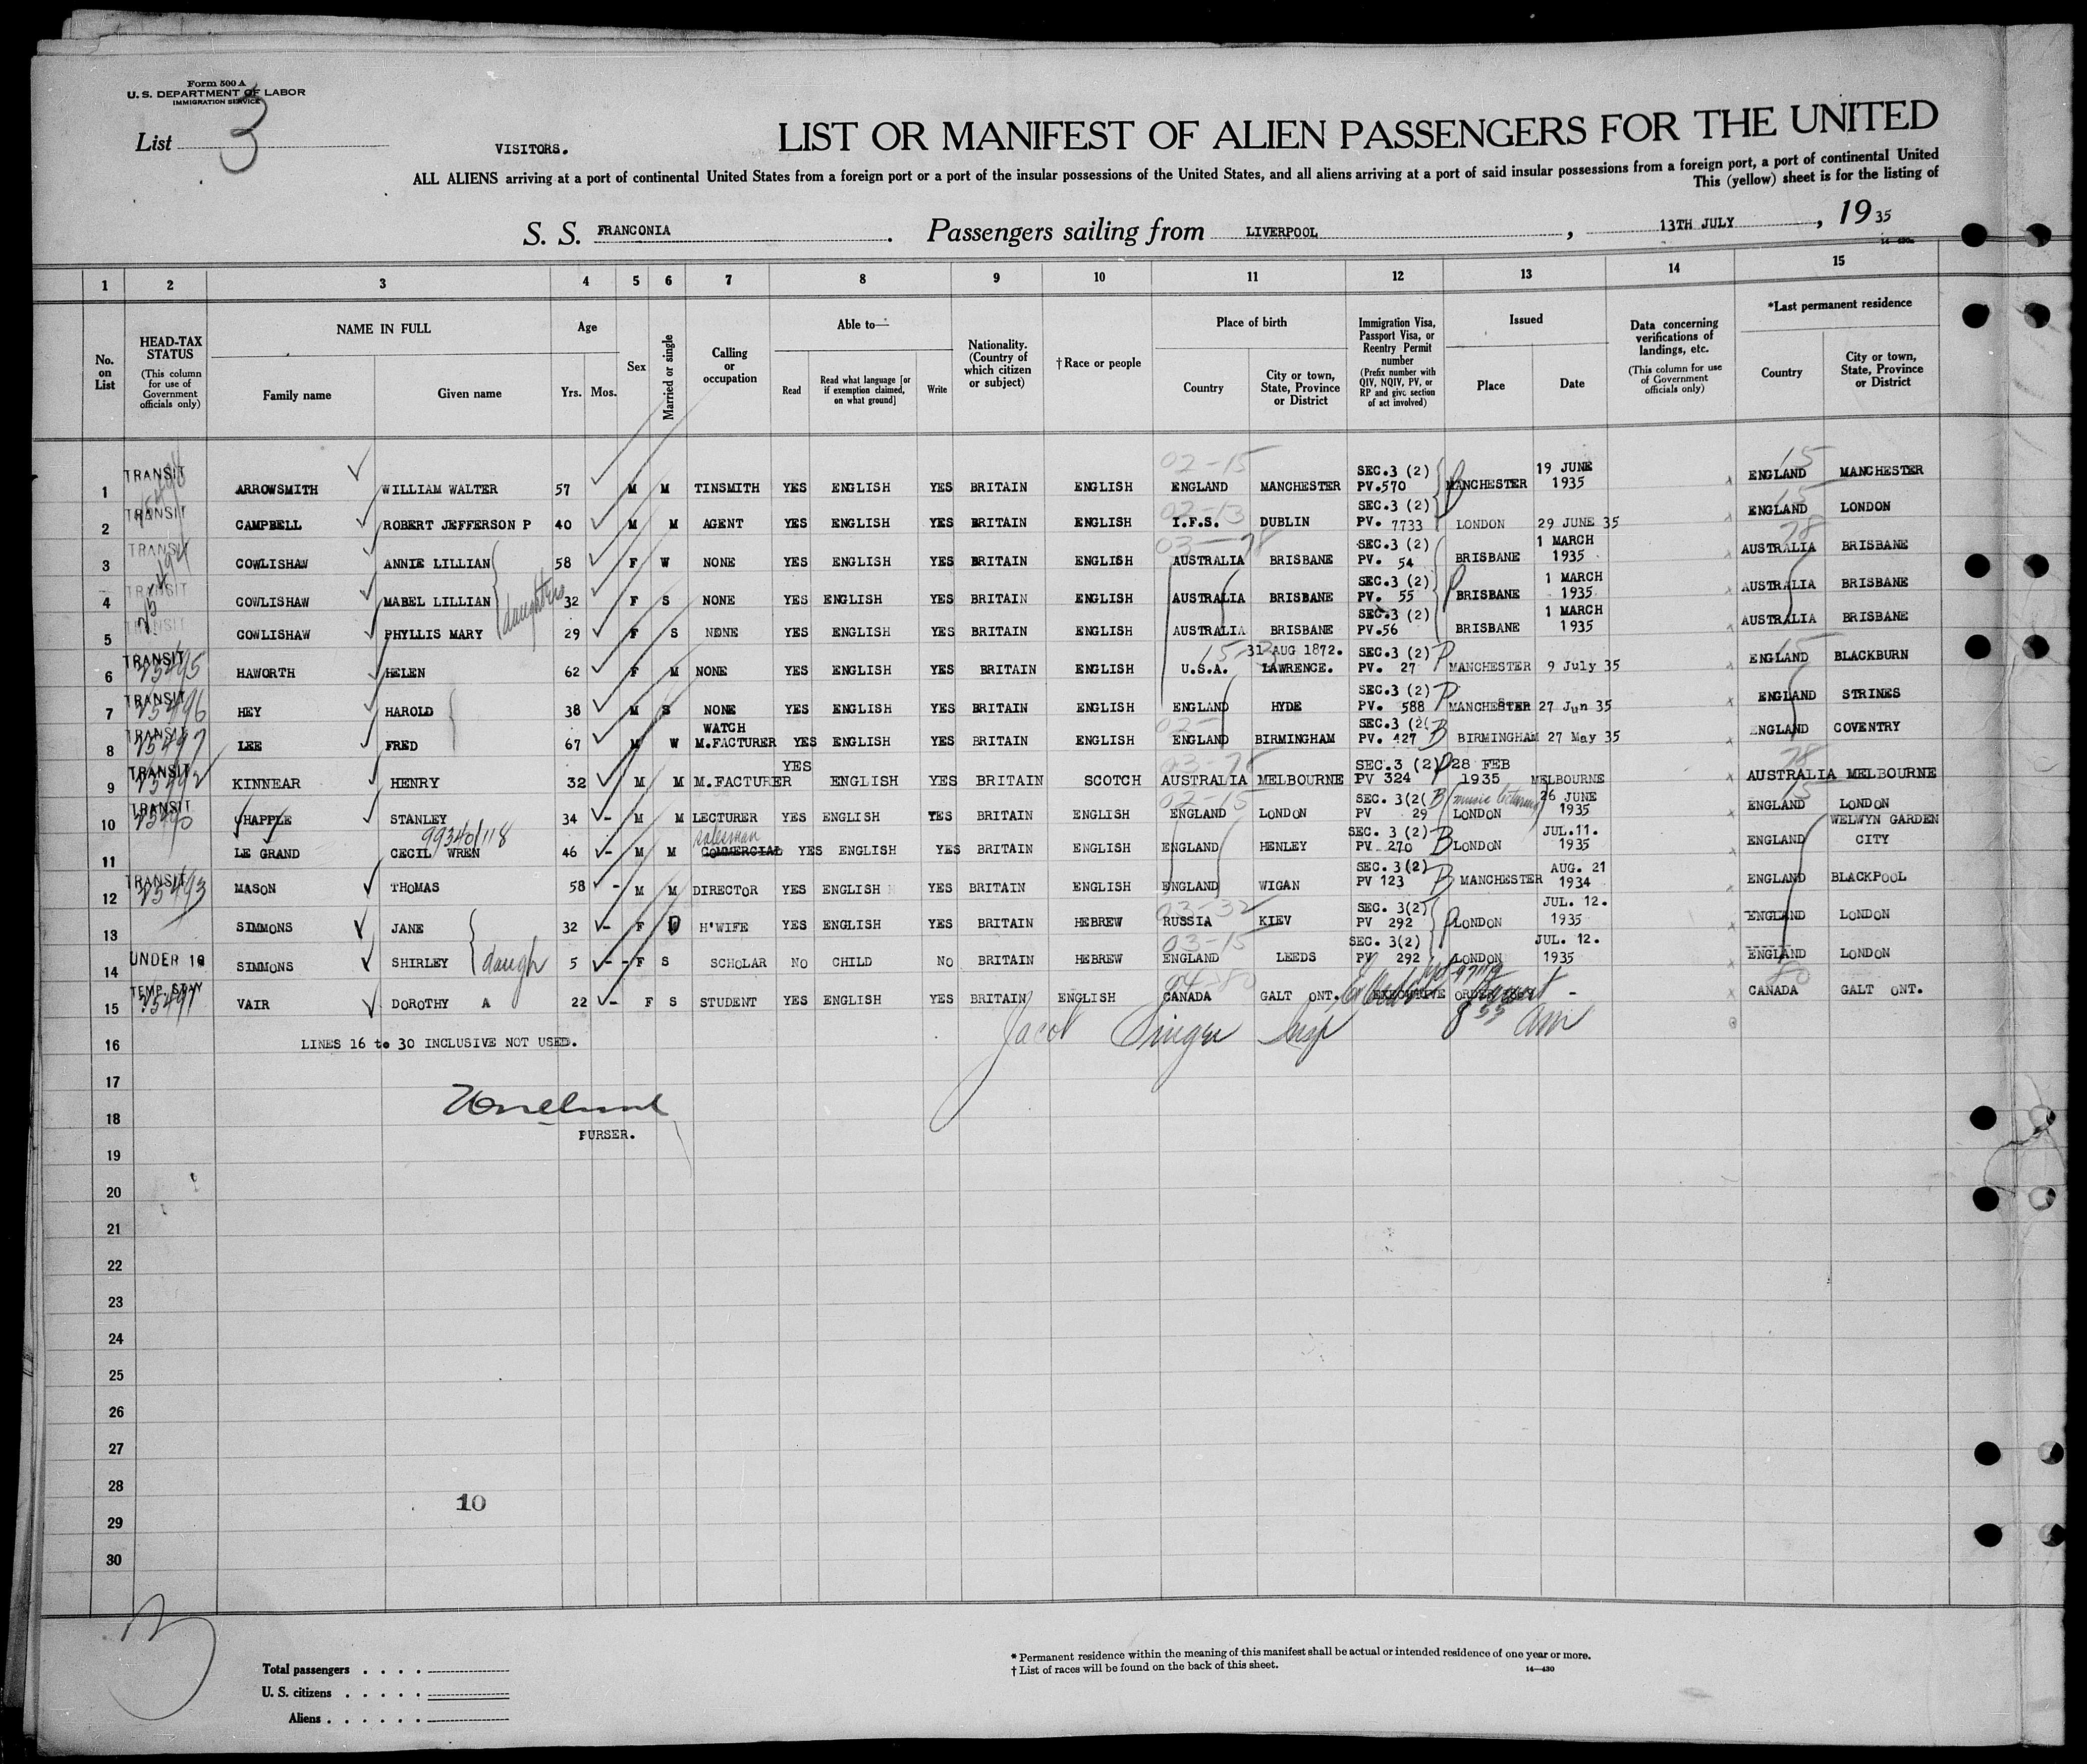 Form 500 A
U. S. DEPARTMENT OF LABOR
IMMIGRATION SERVICE
List 3
VISITORS.
LIST OR MANIFEST OF ALIEN PASSENGERS FOR THE UNITED
ALL ALIENS arriving at a port of continental United States from a foreign port or a port of the insular possessions of the United States, and all aliens arriving at a port of said insular possessions from a foreign port, a port of continental United
This (yellow) sheet is for the listing of
S. S. FRANCONIA. Passengers sailing from LIVERPOOL, 13TH JULY, 19 35
1 2 3 4 5 6 7 8 9 10 11 12 13 14 15
No. on List
HEAD-TAX STATUS (This column for use of Government officials only)
NAME IN FULL
Family name Given name
Age
Yrs. Mos.
Sex
Married or single
Calling or occupation
Able to—
Read Read what language [or if exemption claimed, on what ground] Write
Nationality. (Country of which citizen or subject)
†Race or people
Place of birth
Country City or town, State, Province or District
Immigration Visa, Passport Visa, or Reentry Permit number (Prefix number with QIV, NQIV, PV, or RP and give section of act involved)
Issued
Place Date
Data concerning verifications of landings, etc. (This column for use of Government officials only)
*Last permanent residence
Country City or town, State, Province or District
1 TRANSIT ARROWSMITH WILLIAM WALTER 57 M M TINSMITH YES ENGLISH YES BRITAIN ENGLISH 02-15 ENGLAND MANCHESTER SEC.3 (2) PV.570 MANCHESTER 19 JUNE 1935 15 ENGLAND MANCHESTER
2 TRANSIT CAMPBELL ROBERT JEFFERSON P 40 M M AGENT YES ENGLISH YES BRITAIN ENGLISH 02-13 I.F.S. DUBLIN SEC.3 (2) PV. 7733 LONDON 29 JUNE 35 15 ENGLAND LONDON
3 TRANSIT COWLISHAW ANNIE LILLIAN 58 F W NONE YES ENGLISH YES BRITAIN ENGLISH 03-78 AUSTRALIA BRISBANE SEC.3 (2) PV. 54 BRISBANE 1 MARCH 1935 78 AUSTRALIA BRISBANE
4 TRANSIT COWLISHAW MABEL LILLIAN daughters 32 F S NONE YES ENGLISH YES BRITAIN ENGLISH AUSTRALIA BRISBANE SEC.3 (2) PV. 55 BRISBANE 1 MARCH 1935 AUSTRALIA BRISBANE
5 TRANSIT COWLISHAW PHYLLIS MARY 29 F S NONE YES ENGLISH YES BRITAIN ENGLISH AUSTRALIA BRISBANE SEC.3 (2) PV.56 BRISBANE 1 MARCH 1935 AUSTRALIA BRISBANE
6 TRANSIT 25495 HAWORTH HELEN 62 F M NONE YES ENGLISH YES BRITAIN ENGLISH U.S.A. 31 AUG 1872. LAWRENCE. SEC.3 (2) PV. 27 P MANCHESTER 9 July 35 15 ENGLAND BLACKBURN
7 TRANSIT 25496 HEY HAROLD 38 M S NONE YES ENGLISH YES BRITAIN ENGLISH ENGLAND HYDE SEC.3 (2) PV. 588 P MANCHESTER 27 Jun 35 ENGLAND STRINES
8 TRANSIT 25497 LEE FRED 67 M W WATCH M.FACTURER YES ENGLISH YES BRITAIN ENGLISH 02- ENGLAND BIRMINGHAM SEC.3 (2( PV. 427 B BIRMINGHAM 27 May 35 ENGLAND COVENTRY
9 TRANSIT 25492 KINNEAR HENRY 32 M M M.FACTURER YES ENGLISH YES BRITAIN SCOTCH 03-78 AUSTRALIA MELBOURNE SEC.3 (2) PV 324 P 28 FEB 1935 MELBOURNE 78 AUSTRALIA MELBOURNE
10 TRANSIT 25490 CHAPPLE STANLEY 34 M M LECTURER YES ENGLISH YES BRITAIN ENGLISH 02-15 ENGLAND LONDON SEC. 3(2( PV 29 B music lecturing LONDON 26 JUNE 1935 15 ENGLAND LONDON
11 LE GRAND CECIL WREN 99340/118 46 M M salesman COMMERCIAL YES ENGLISH YES BRITAIN ENGLISH ENGLAND HENLEY SEC. 3 (2) PV 270 B LONDON JUL.11. 1935 ENGLAND WELWYN GARDEN CITY
12 TRANSIT 25493 MASON THOMAS 58 M M DIRECTOR YES ENGLISH YES BRITAIN ENGLISH ENGLAND WIGAN SEC. 3(2) PV 123 B MANCHESTER AUG. 21 1934 ENGLAND BLACKPOOL
13 SIMMONS JANE 32 F D H'WIFE YES ENGLISH YES BRITAIN HEBREW 03-32 RUSSIA KIEV SEC. 3(2) PV 292 P LONDON JUL. 12. 1935 ENGLAND LONDON
14 UNDER 16 SIMMONS SHIRLEY daugh 5 F S SCHOLAR NO CHILD NO BRITAIN HEBREW 03-15 ENGLAND LEEDS SEC. 3(2) PV 292 LONDON JUL. 12. 1935 ENGLAND LONDON
15 TEMP. STAY 25491 VAIR DOROTHY A 22 F S STUDENT YES ENGLISH YES BRITAIN ENGLISH 04-80 CANADA GALT ONT. EXECUTIVE ORDER 80 CANADA GALT ONT.
16 LINES 16 to 30 INCLUSIVE NOT USED.
Jacob Singer Insp 8 55 am
17
18
PURSER.
19
20
21
22
23
24
25
26
27
28
10
29
30
3
Total passengers
U. S. citizens
Aliens
* Permanent residence within the meaning of this manifest shall be actual or intended residence of one year or more.
† List of races will be found on the back of this sheet.
14—430